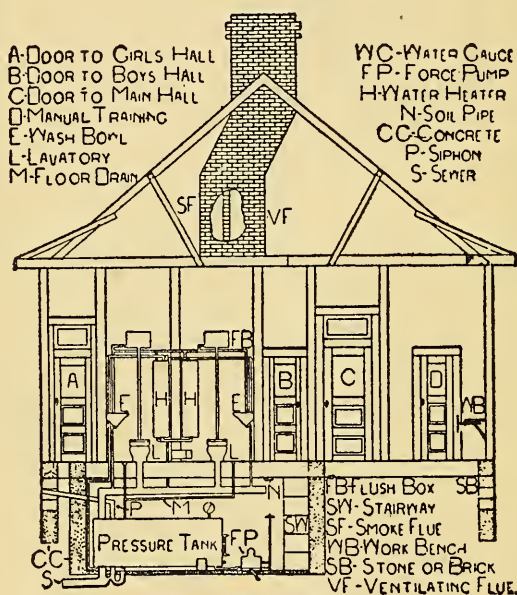 A-DOOR TO GIRLS HALL
B-DOOR TO BOYS HALL
C-DOOR TO MAIN HALL
D-MANUAL TRAINING
E-WASH BOWL
L-LAVATORY
M-FLOOR DRAIN
WC-WATER GAUGE
FP-FORCE PUMP
H-WATER HEATER
N-SOIL PIPE
CC-CONCRETE
P-SIPHON
S-SEWER
SF
VF
FB
A
E
H
H
E
B
C
D
WB
L
L
N
P
M
SW
PRESSURE TANK
FP
CC
S
FB-FLUSH BOX
SB
SW-STAIRWAY
SF-SMOKE FLUE
WB-WORK BENCH
SB-STONE OR BRICK
VF-VENTILATING FLUE.